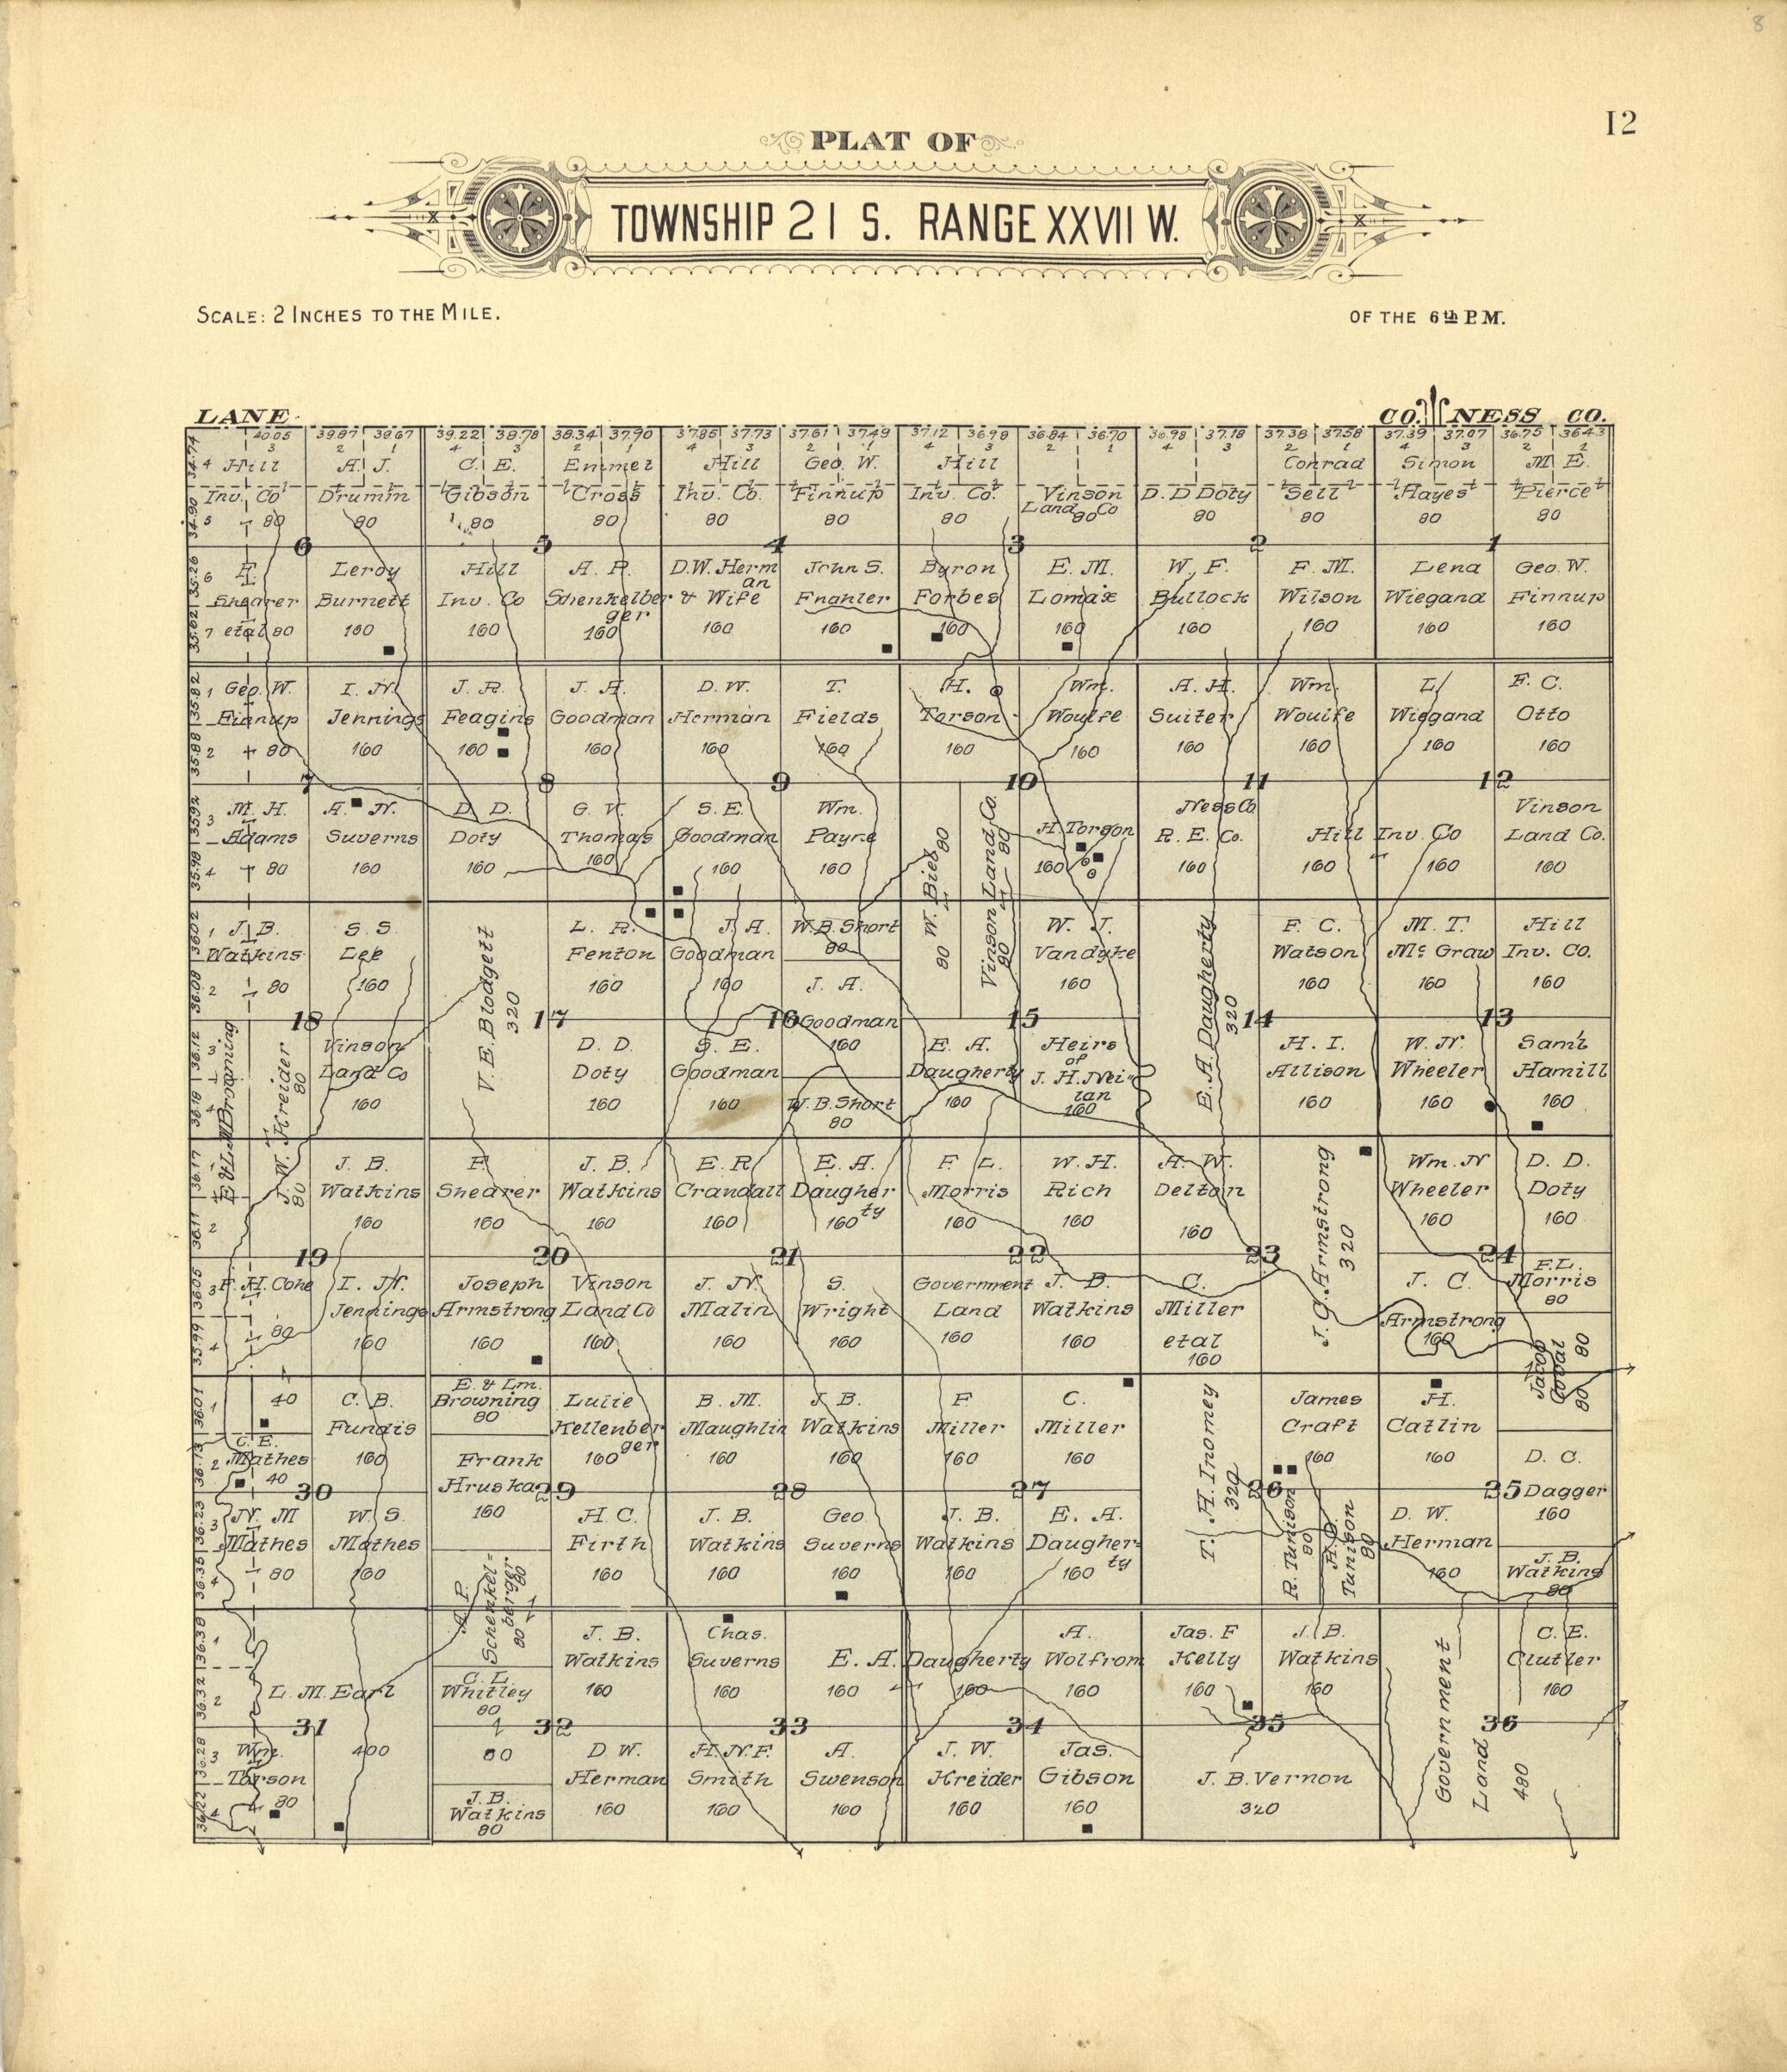 8
12
PLAT OF
TOWNSHIP 21 S. RANGE XXVII W.
SCALE: 2 INCHES TO THE MILE.
OF THE 6th P.M.
LANE CO. NESS CO.
40.05 39.87 39.67 39.22 38.78 38.34 37.90 37.85 37.73 37.61 37.49 37.12 36.98 36.84 36.70 36.98 37.18 37.38 37.58 37.39 37.07 36.75 36.43
Hill Inv. Co 80
A. J. Drumm 80
C. E. Gibson 80
Emmel Cross 80
Hill Inv. Co. 80
Geo. W. Finnup 80
Hill Inv. Co. 80
Vinson Land Co 80
D. D Doty 80
Conrad Sell 80
Simon Hayes 80
M E. Pierce 80
6 5 4 3 2 1
F. Shearer etal 80
Leroy Burnett 160
Hill Inv. Co 160
A. P. Schenkelberger 160
D.W. Herman & Wife 160
John S. 160
Byron Forbes 160
E. M. Lomax 160
W. F. Bullock 160
F. M. Wilson 160
Lena Wiegand 160
Geo. W. Finnup 160
Geo. W. Finnup 80
I. N. Jennings 160
J. R. Feagins 160
J. A. Goodman 160
D. W. Herman 160
T. Fields 160
H. Torson 160
Wm. Woulfe 160
A. H. Suiter 160
Wm. Woulfe 160
L. Wiegand 160
F. C. Otto 160
7 8 9 10 11 12
M. H. Adams 80
A. N. Suverns 160
D. D. Doty 160
G. V. Thomas 160
S. E. Goodman 160
Wm. Payne 160
W. Biel 80 80
Vinson Land Co. 80 80
H. Torson 160
Ness Co R. E. Co. 160
Hill Inv. Co 160 160
Vinson Land Co. 160
J. B. Watkins 80
S. S. Lee 160
V. E. Blodgett 320
L. R. Fenton 160
J. A. Goodman 160
W. B. Short 80
J. A. Goodman 160
W. J. Vandyke 160
E. A. Daugherty 320
F. C. Watson 160
M. T. McGraw 160
Hill Inv. Co. 160
18 17 16 15 14 13
E & L M Browning
J. W. Kreider 80 80
Vinson Land Co 160
D. D. Doty 160
S. E. Goodman 160
W. B. Short 80
E. A. Daugherty 160
Heirs of J. H. Neilan 160
H. I. Allison 160
W. N. Wheeler 160
Saml Hamill 160
J. B. Watkins 160
F. Shearer 160
J. B. Watkins 160
E. R Crandall 160
E. A. Daugherty 160
F. L. Morris 160
W. H. Rich 160
A. W. Delton 160
J. G. Armstrong 320
Wm. N Wheeler 160
D. D. Doty 160
19 20 21 22 23 24
F. H. Cone 80
I. N. Jennings 160
Joseph Armstrong 160
Vinson Land Co 160
J. N. Malin 160
S. Wright 160
Government Land 160
J. B. Watkins 160
C. Miller etal 160
J. C. Armstrong 160
F. L. Morris 80
Jacob 80 80
40
C. E. Mathes 40
C. B. Fundis 160
E. & Lm. Browning 80
Frank Hruska 160
Lulie Kellenberger 160
B. M. Maughlin 160
J. B. Watkins 160
F Miller 160
C. Miller 160
T. H. Inomey 320
James Craft 160
H. Catlin 160
D. C. Dagger 160
30 29 28 27 26 25
N. M Mathes 80
W. S. Mathes 160
A. P. Schenkelberger 80 80
H. C. Firth 160
J. B. Watkins 160
Geo Suverns 160
J. B. Watkins 160
E. A. Daugherty 160
R. Tunison 80
Tunison 80
D. W. Herman 160
J. B. Watkins 80
L. M. Earl 400
C. L. Whitley 80
J. B. Watkins 160
Chas. Suverns 160
E. A. Daugherty 160 160
A. Wolfrom 160
Jas. F Kelly 160
J. B. Watkins 160
Government Land 480
C. E. Clutler 160
31 32 33 34 35 36
Wm. Torson 80
80
J. B. Watkins 80
D W. Herman 160
H. N. F. Smith 160
A. Swenson 160
J. W. Kreider 160
Jas. Gibson 160
J. B. Vernon 320